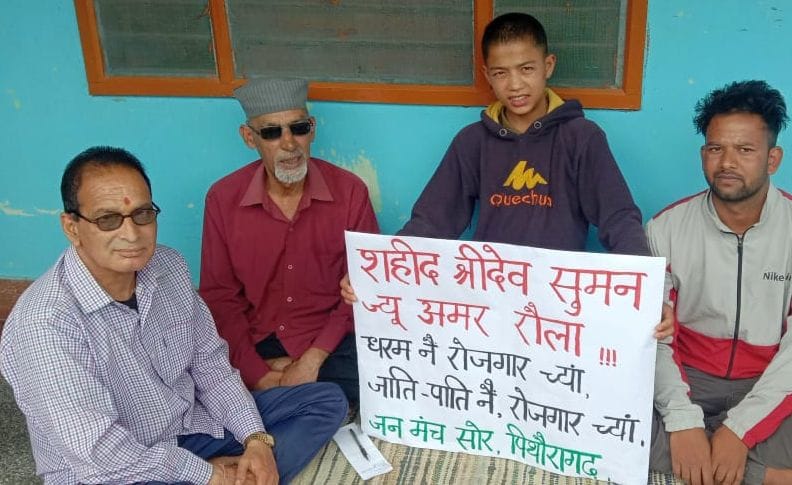 शहीद श्रीदेव सुमन
ज्यू अमर रौला !!!
धरम नै रोजगार च्यां,
जाति-पाति नै, रोजगार च्यां,
जन मंच सोर, पिथौरागढ़.
Quechua
Nike